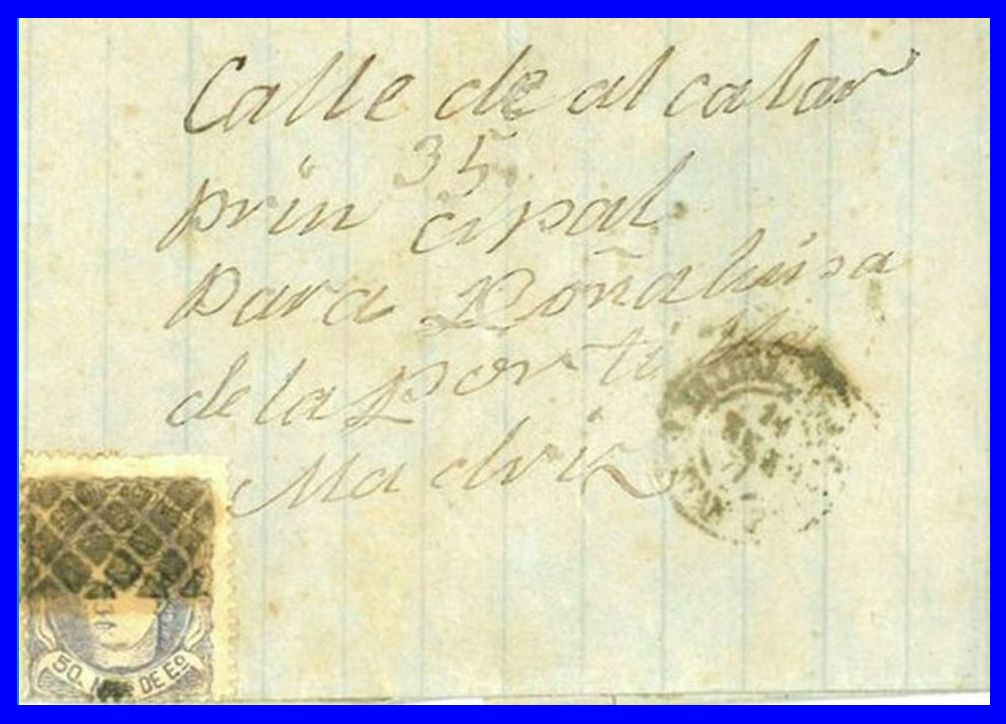 Calle de al calar
35
prin cipal
para Doña luisa
de la porti lla
Madriz
50. MILS DE Eo